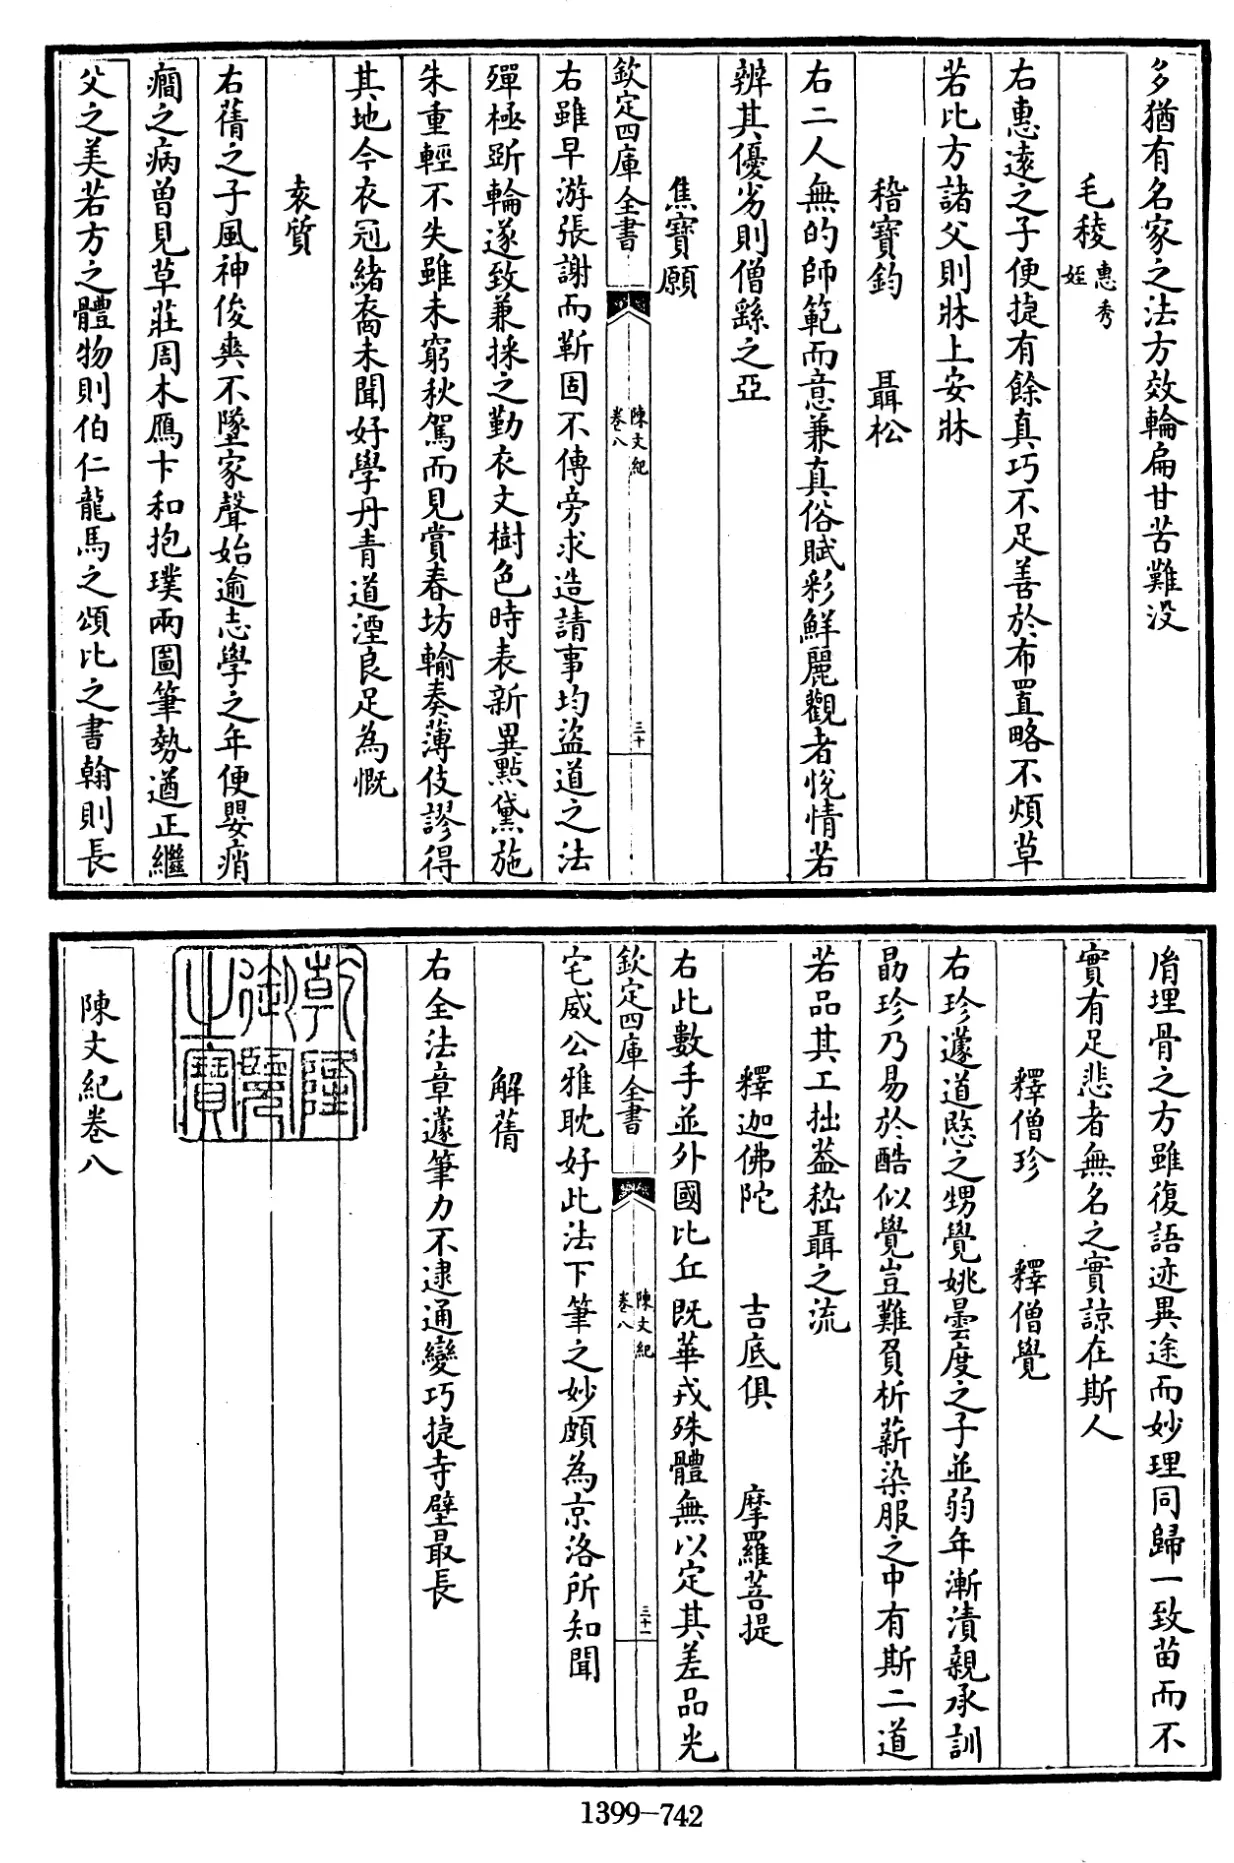 多猶有名家之法方效輪扁甘苦難没
毛稜惠秀姪
右惠遠之子便捷有餘真巧不足善於布置略不煩草
若比方諸父則牀上安牀
嵇寶鈞 聶松
右二人無的師範而意兼真俗賦彩鮮麗觀者悅情若
辨其優劣則僧繇之亞
焦寶願
欽定四庫全書 陳文紀 卷八 三十
右雖早游張謝而靳固不傳旁求造請事均盜道之法
殫極斵輪遂致兼採之勤衣文樹色時表新異點黛施
朱重輕不失雖未窮秋駕而見賞春坊輸奏薄伎謬得
其地今衣冠緒裔未聞好學丹青道湮良足為慨
袁質
右蒨之子風神俊爽不墜家聲始逾志學之年便嬰痟
癎之病曾見草莊周木鴈卞和抱璞兩圖筆勢遒正繼
父之美若方之體物則伯仁龍馬之頌比之書翰則長
胤埋骨之方雖復語迹異途而妙理同歸一致苗而不
實有足悲者無名之實諒在斯人
釋僧珍 釋僧覺
右珍蘧道愍之甥覺姚曇度之子並弱年漸漬親承訓
勗珍乃易於酷似覺豈難負析薪染服之中有斯二道
若品其工拙盖嵇聶之流
釋迦佛陀 吉底俱 摩羅菩提
右此數手並外國比丘既華戎殊體無以定其差品光
欽定四庫全書 陳文紀 卷八 三十一
宅威公雅耽好此法下筆之妙頗為京洛所知聞
解蒨
右全法章蘧筆力不逮通變巧捷寺壁最長
乾隆御覽之寶
陳文紀卷八
1399-742